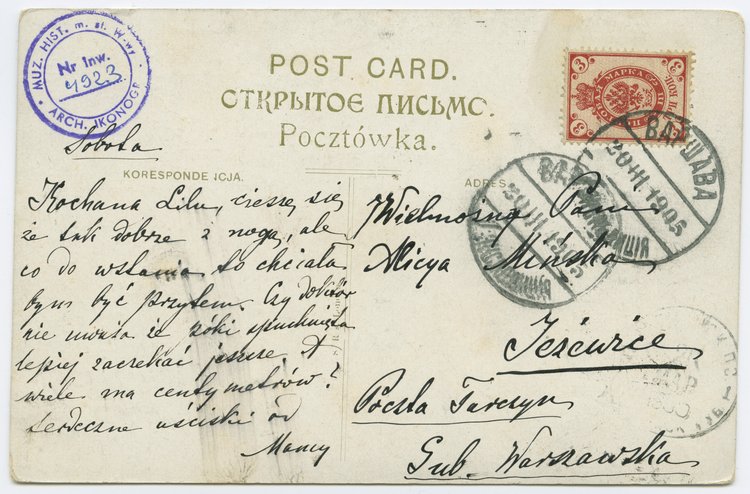 MUZ. HIST. m. st. W-wy
Nr Inw.
4923
ARCH. IKONOGR.
POST CARD.
ОТКРЫТОЕ ПИСЬМО.
Pocztówka.
KORESPONDENCJA.
ADRES
Sobota
Kochana Lilu, cieszę się
że tak dobrze z nogą, ale
co do wstania to chciała
bym być przytem. Czy doktór
nie uważa że póki spuchnięta
lepiej zaczekać jeszcze. A
wiele ma centymetrów?
Serdeczne uściski od
Mamy
Wielmożna Pani
Alicya Mińska
Jeżewice
Poczta Tarczyn
Gub. Warszawska
3 МАРКА 3
3 3
ВАРШАВА
20 III 1905
ВАРШАВА
20 III 1905